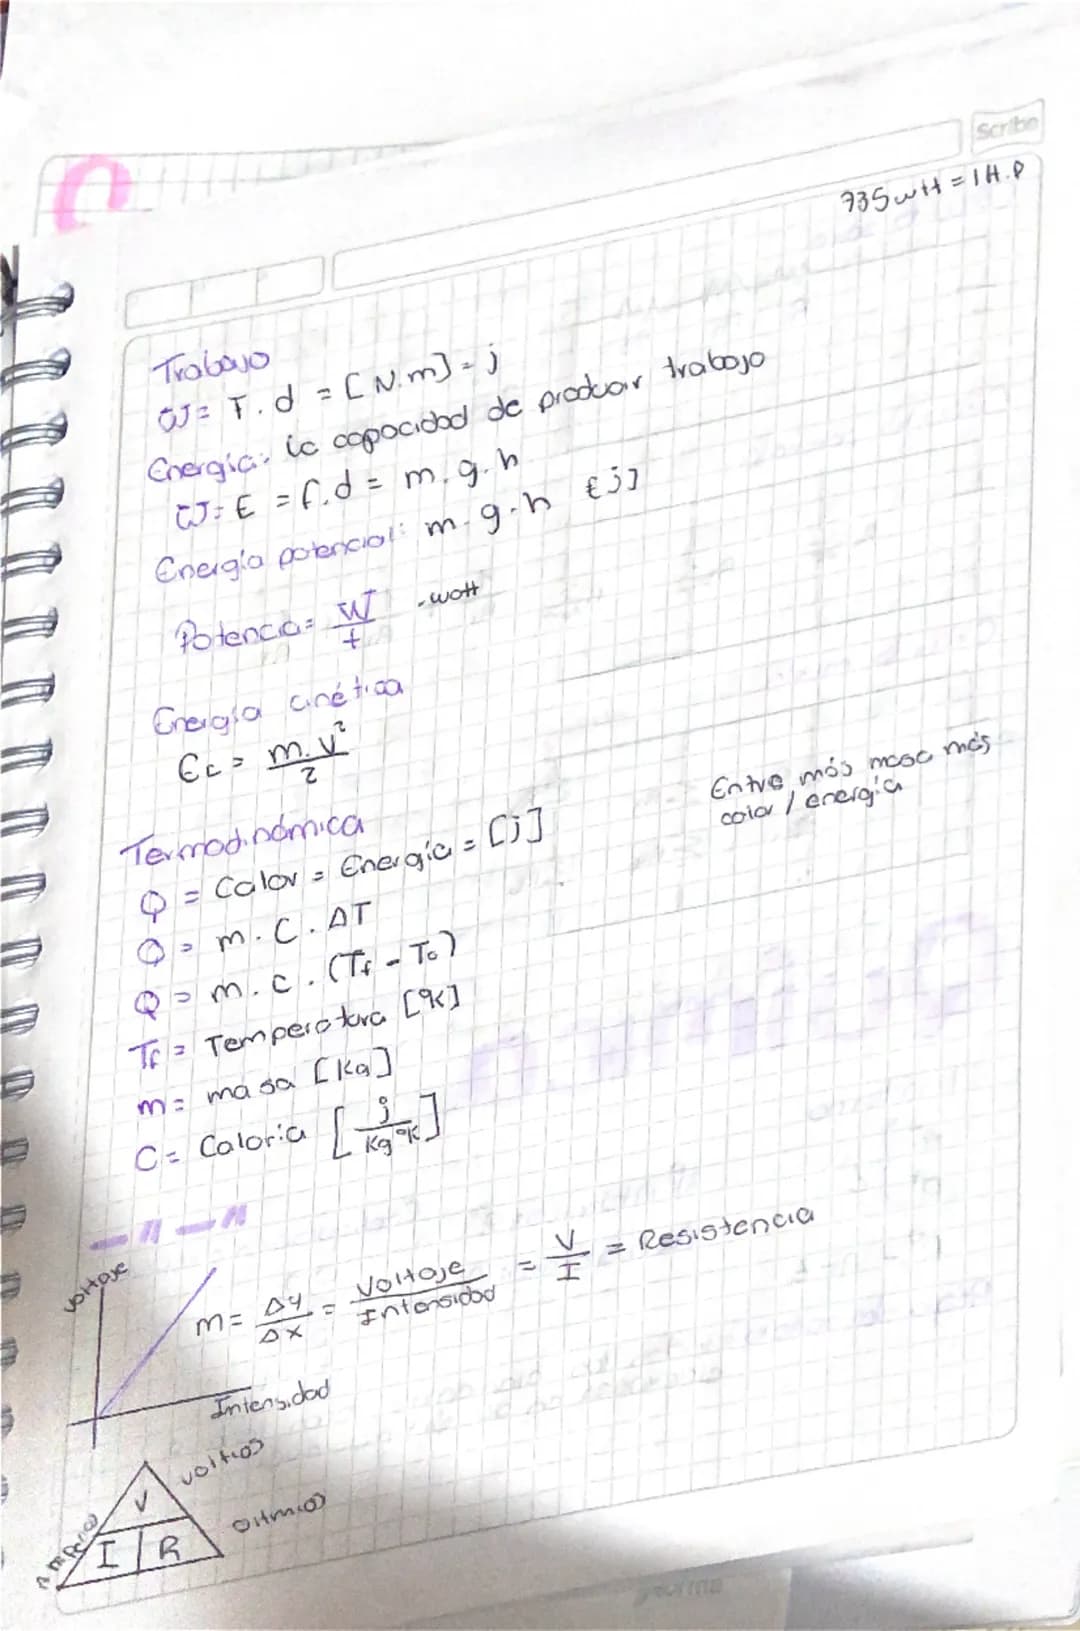 Scribe
735 wtt = 1 H.P
Trabajo
W = F . d = [N.m] = j
Energía: la capacidad de producir trabajo
W = E = f . d = m . g . h
Energía potencial: m . g . h [j]
Potencia = W/t - watt
Energía cinética
Ec = m . v²/2
Entre más masa más
calor / energía
Termodinámica
Q = Calor = Energía = [j]
Q = m . C . ΔT
Q = m . c . (Tf - To)
Tf = Temperatura [°K]
m = masa [Kg]
C = Caloría [j/Kg °K]
Voltaje
m = Δy/Δx = Voltaje/Intensidad = V/I = Resistencia
Intensidad
Voltios
V
I R
Ohmios